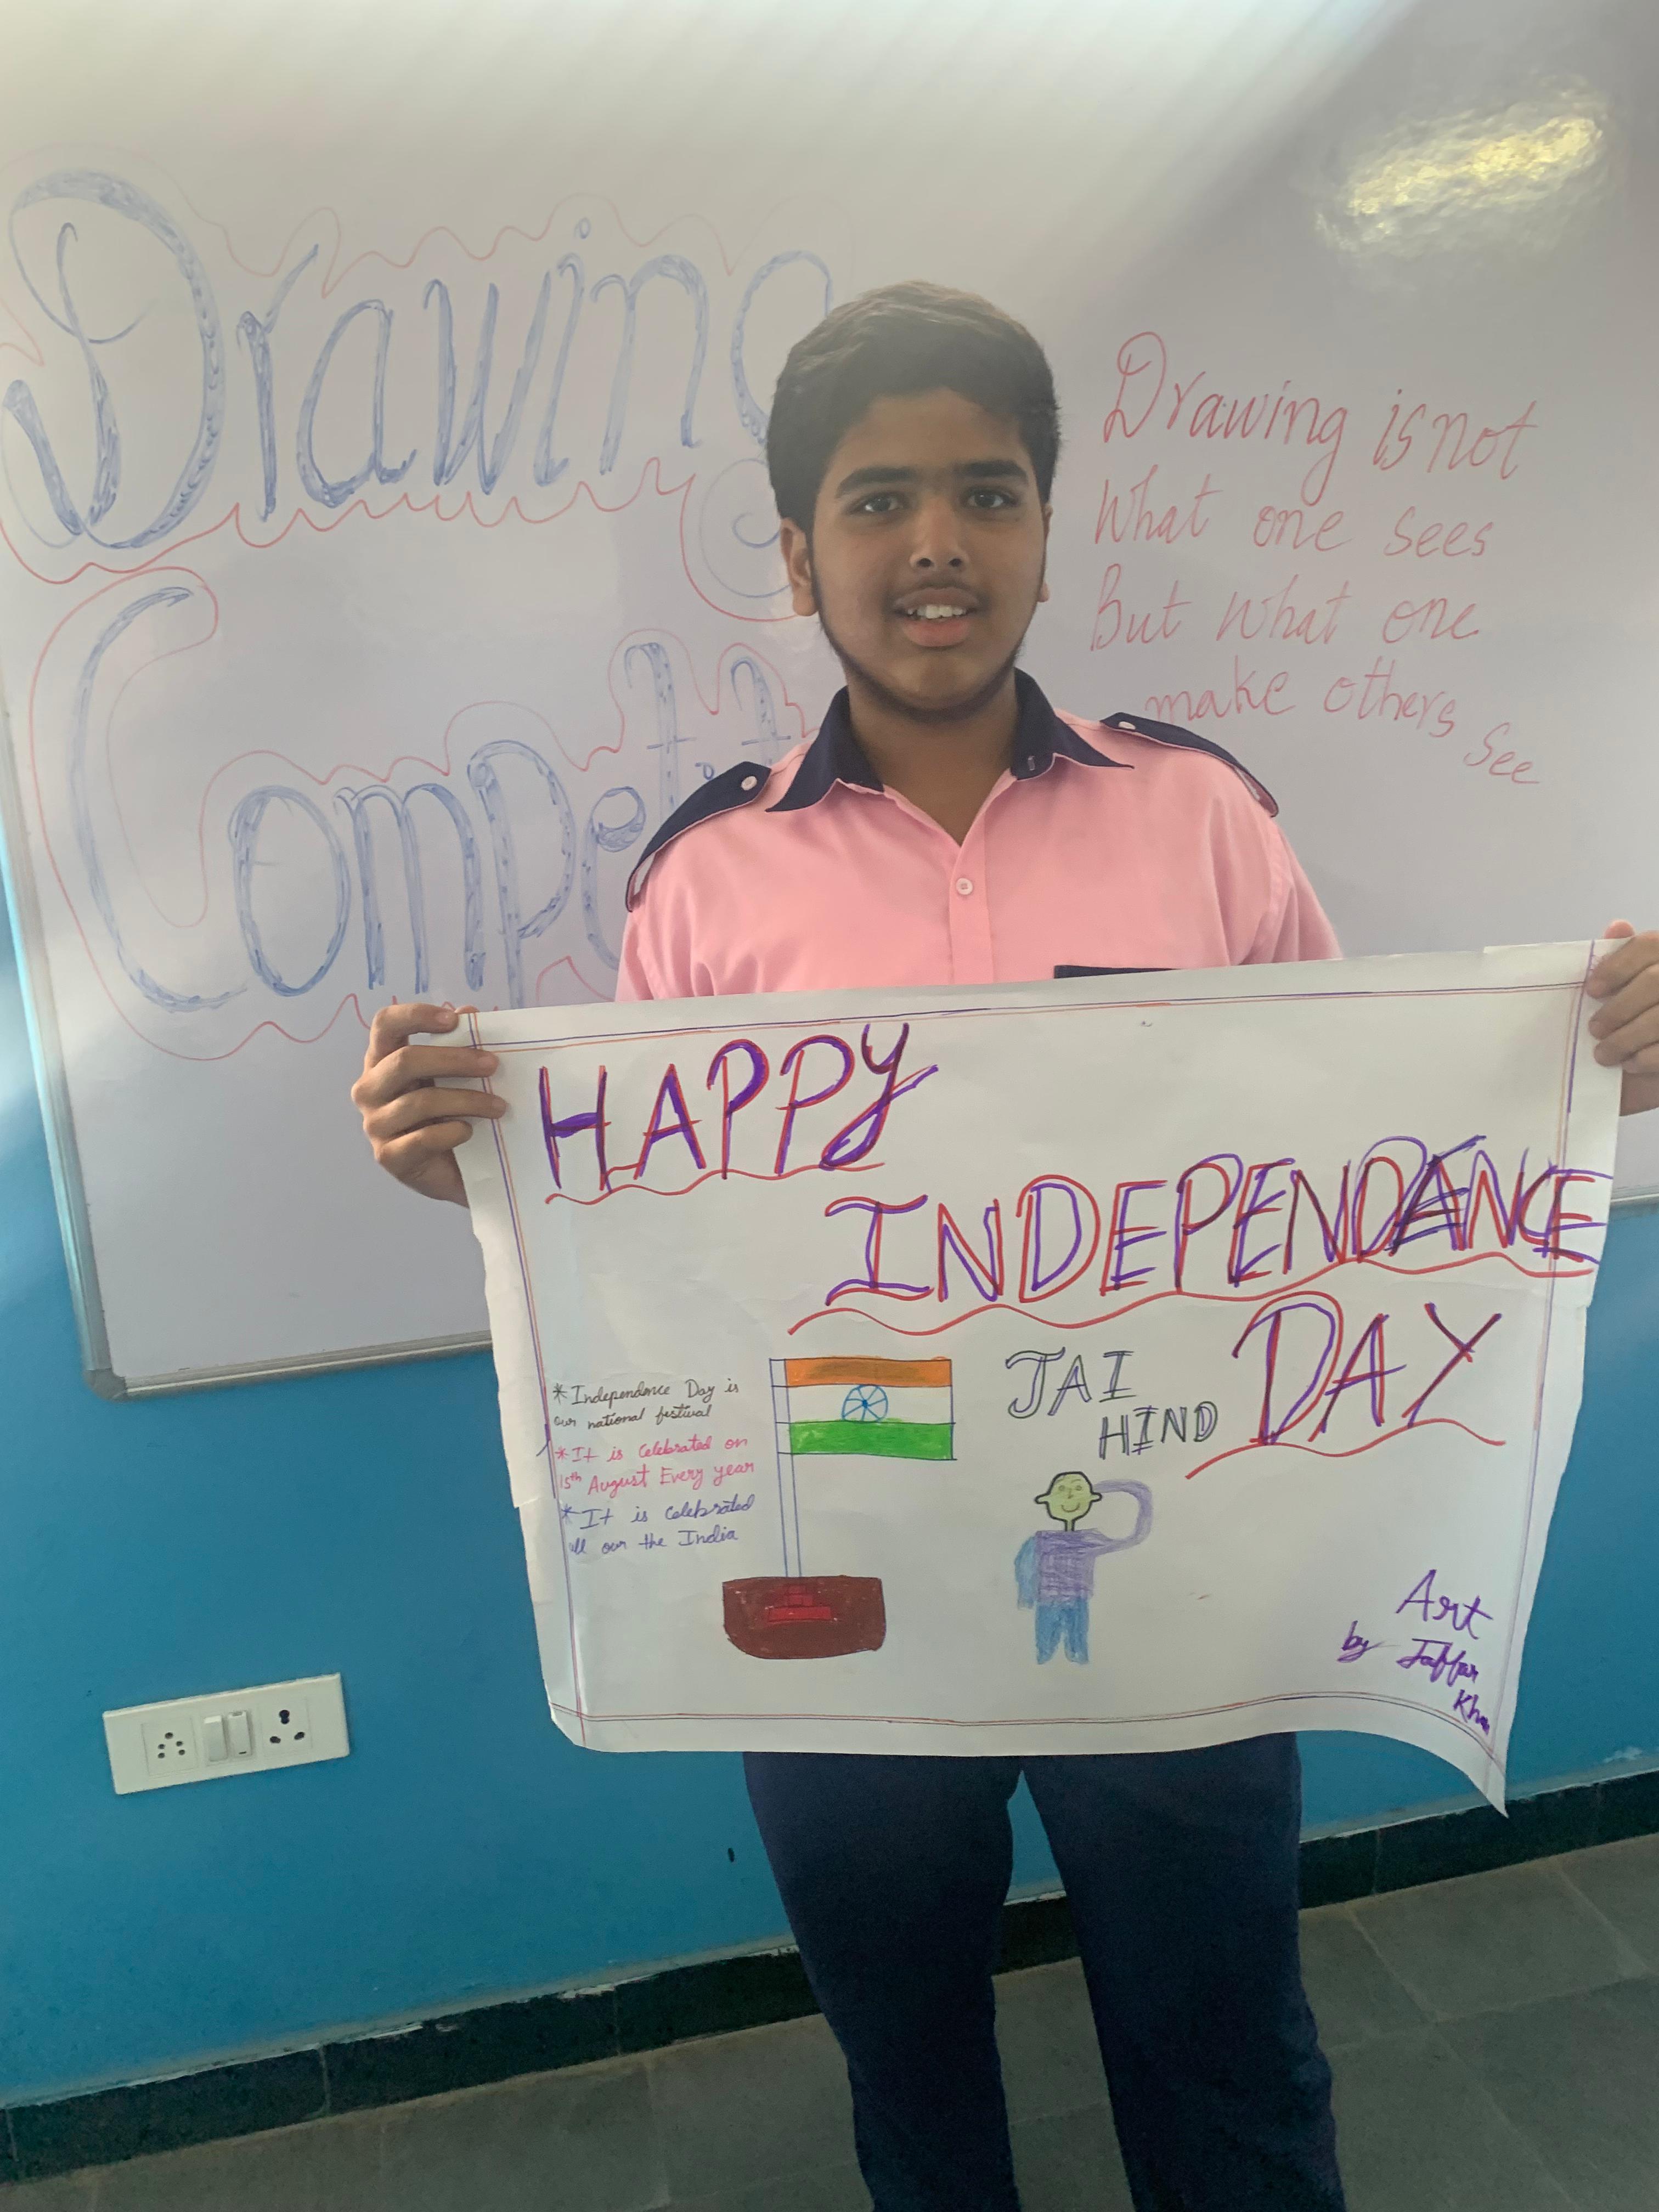 Drawing
Compet
Drawing is not
What one sees
But what one
make others see
HAPPY
INDEPENDANCE
DAY
JAI
HIND
* Independence Day is
our national festival
* It is celebrated on
15th August Every year
* It is celebrated
all our the India
Art
by Jaffar
Khan